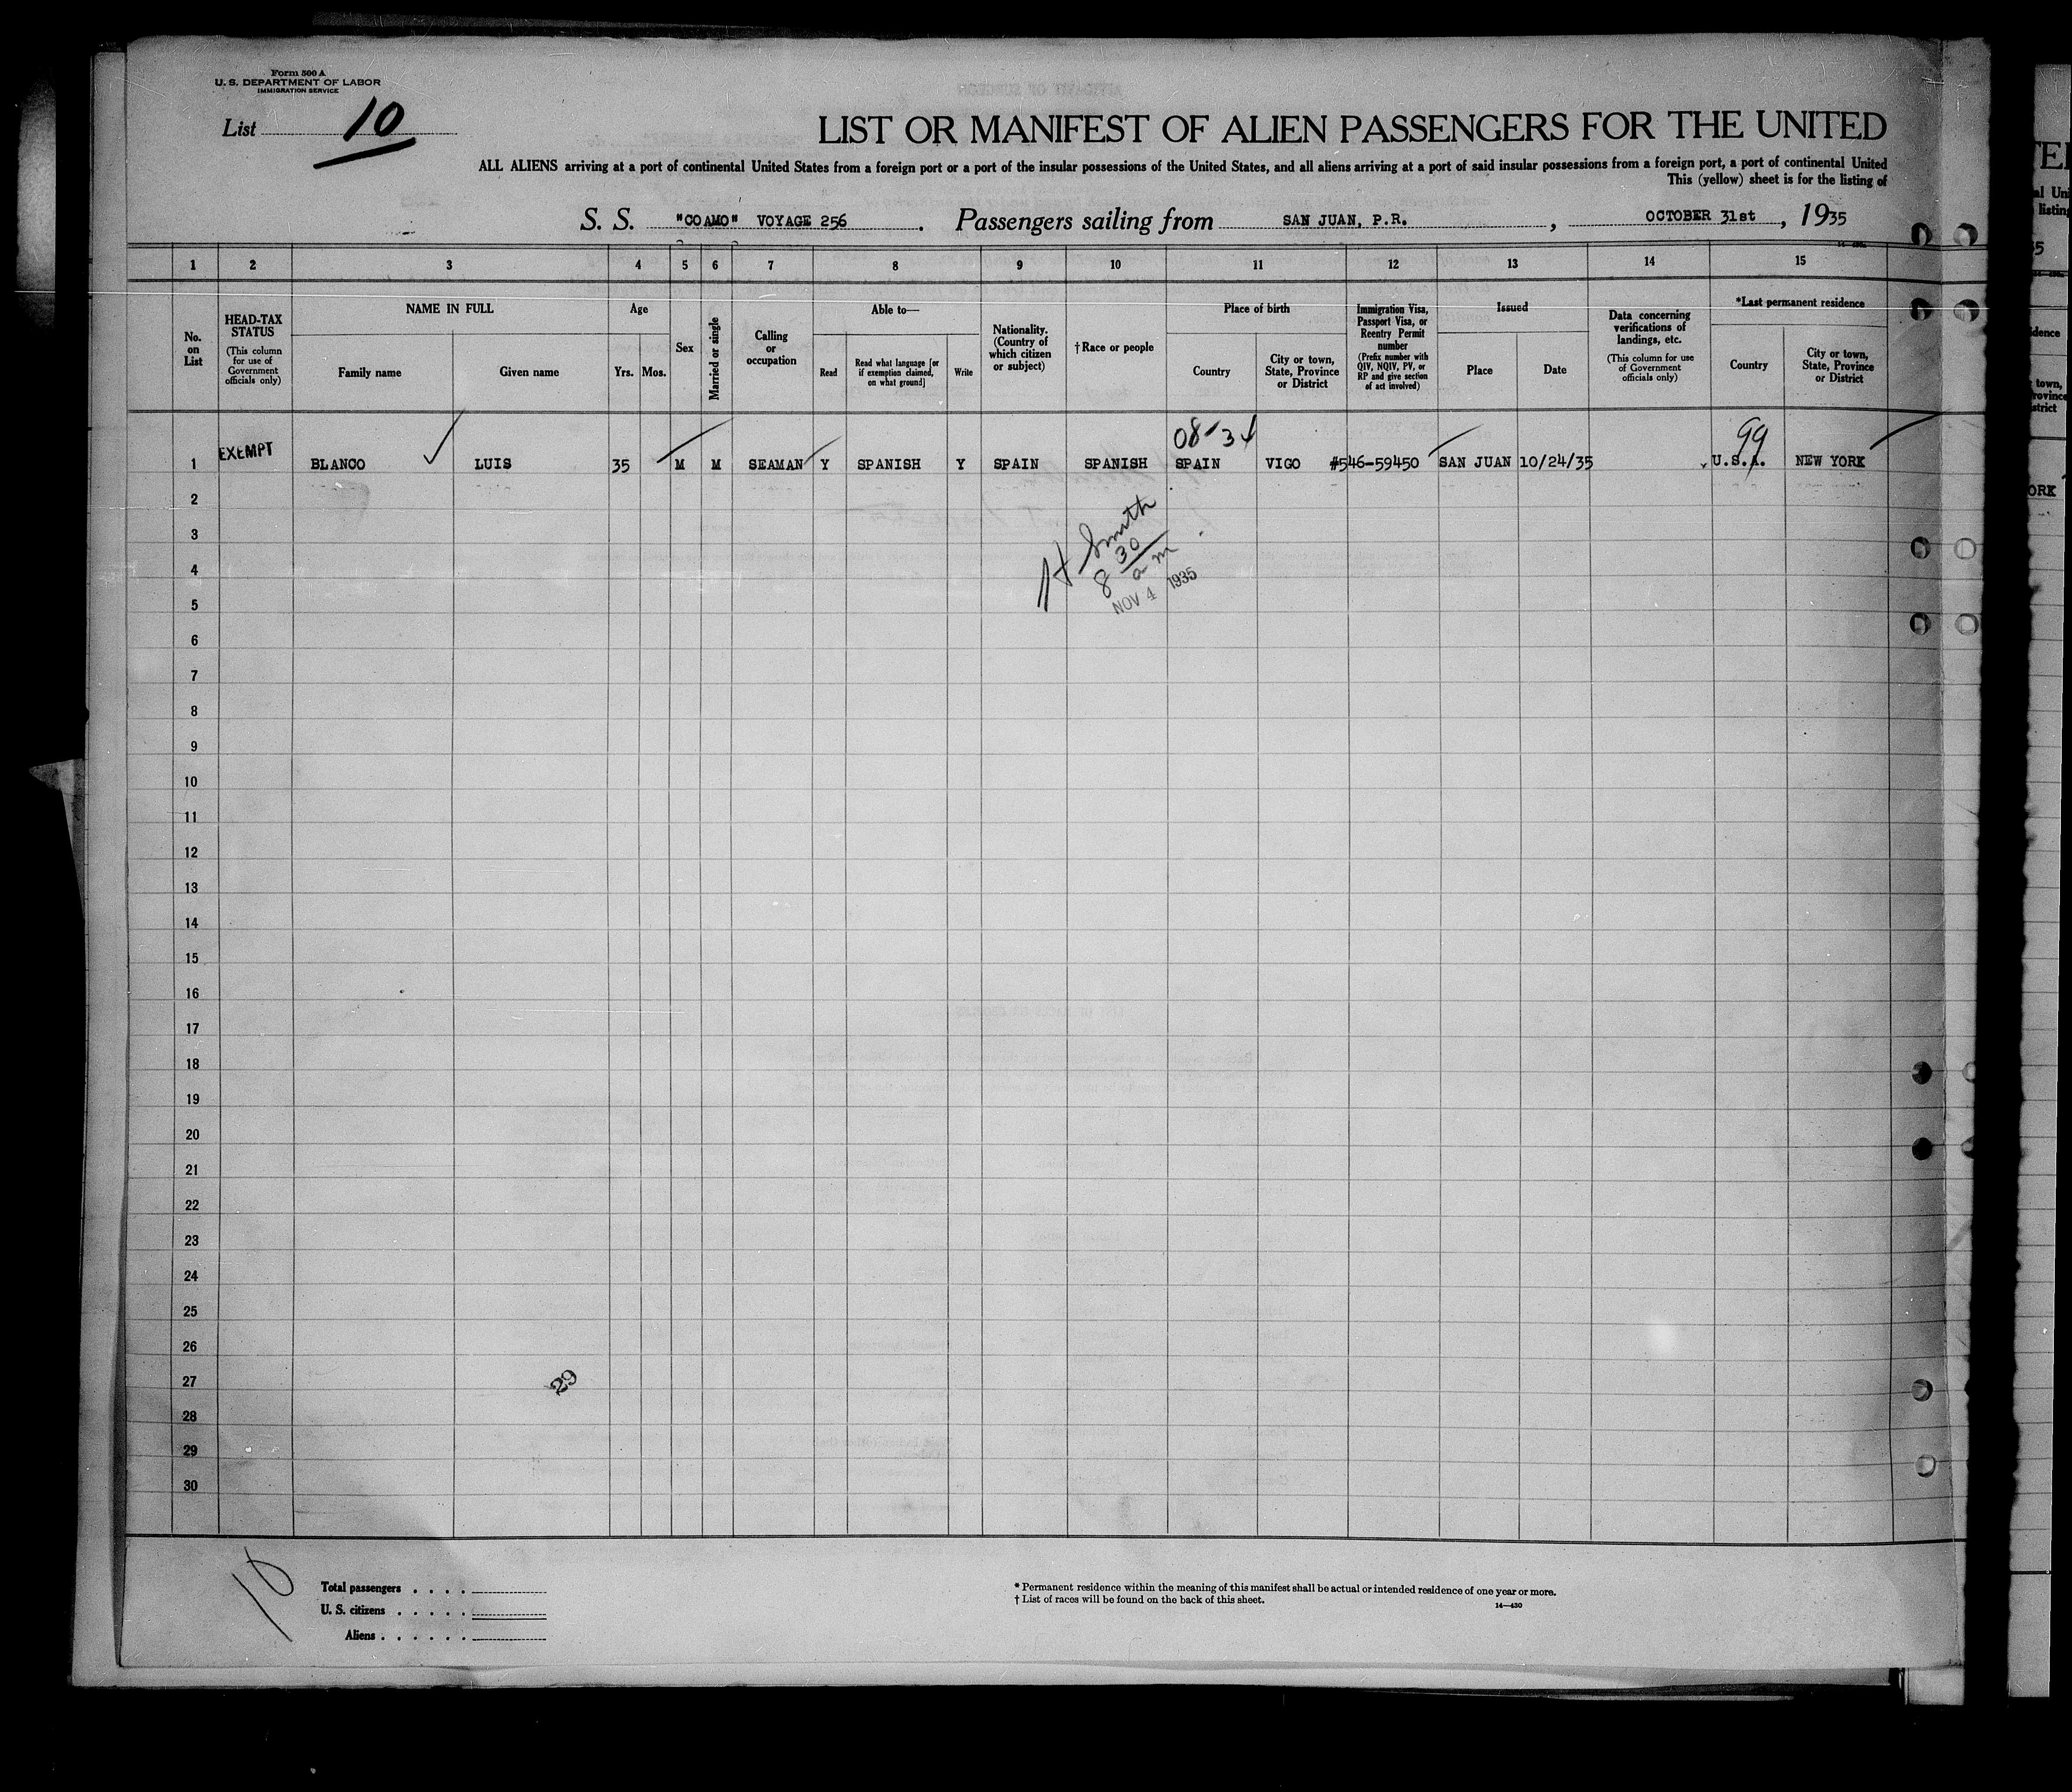 Form 500 A
U. S. DEPARTMENT OF LABOR
IMMIGRATION SERVICE
List 10
LIST OR MANIFEST OF ALIEN PASSENGERS FOR THE UNITED
ALL ALIENS arriving at a port of continental United States from a foreign port or a port of the insular possessions of the United States, and all aliens arriving at a port of said insular possessions from a foreign port, a port of continental United
This (yellow) sheet is for the listing of
S. S. "COAMO" VOYAGE 256 . Passengers sailing from SAN JUAN, P.R. , OCTOBER 31st , 1935
1 2 3 4 5 6 7 8 9 10 11 12 13 14 15
No. on List
HEAD-TAX STATUS
(This column for use of Government officials only)
NAME IN FULL
Family name
Given name
Age
Yrs. Mos.
Sex
Married or single
Calling or occupation
Able to—
Read
Read what language [or if exemption claimed, on what ground]
Write
Nationality. (Country of which citizen or subject)
†Race or people
Place of birth
Country
City or town, State, Province or District
Immigration Visa, Passport Visa, or Reentry Permit number
(Prefix number with QIV, NQIV, PV, or RP and give section of act involved)
Issued
Place
Date
Data concerning verifications of landings, etc.
(This column for use of Government officials only)
*Last permanent residence
Country
City or town, State, Province or District
08-34 99
1 EXEMPT BLANCO LUIS 35 M M SEAMAN Y SPANISH Y SPAIN SPANISH SPAIN VIGO #546-59450 SAN JUAN 10/24/35 U.S.A. NEW YORK
2
3
4
H Smith
8 30 a m
NOV 4 1935
5
6
7
8
9
10
11
12
13
14
15
16
17
18
19
20
21
22
23
24
25
26
27
29
28
29
30
10
Total passengers . . . .
U. S. citizens . . . . .
Aliens . . . . . .
* Permanent residence within the meaning of this manifest shall be actual or intended residence of one year or more.
† List of races will be found on the back of this sheet.
14—430